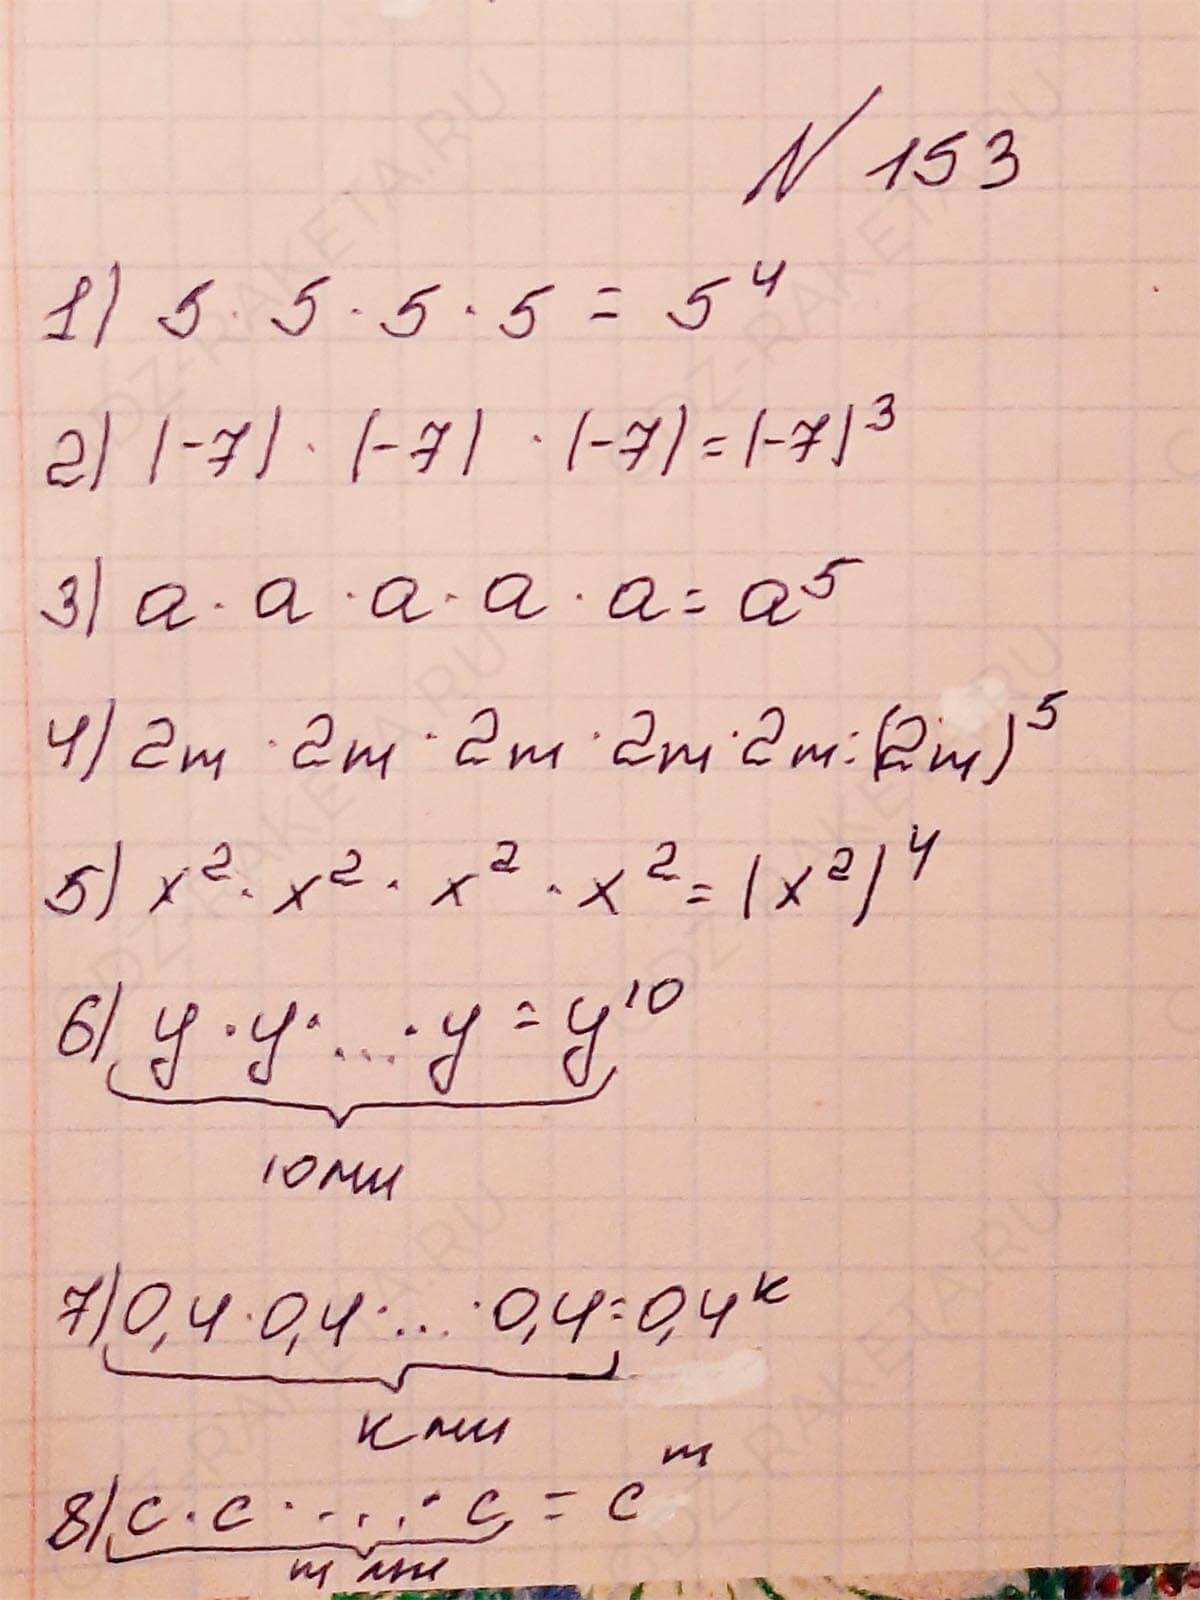 N 153
1) 5 · 5 · 5 · 5 = 5⁴
2) (-7) · (-7) · (-7) = (-7)³
3) a · a · a · a · a = a⁵
4) 2m · 2m · 2m · 2m · 2m = (2m)⁵
5) x² · x² · x² · x² = (x²)⁴
6) y · y · ... · y = y¹⁰
10 мн
7) 0,4 · 0,4 · ... · 0,4 = 0,4ᵏ
к мн
8) c · c · ... · c = cᵐ
m мн
GDZ-RAKETA.RU